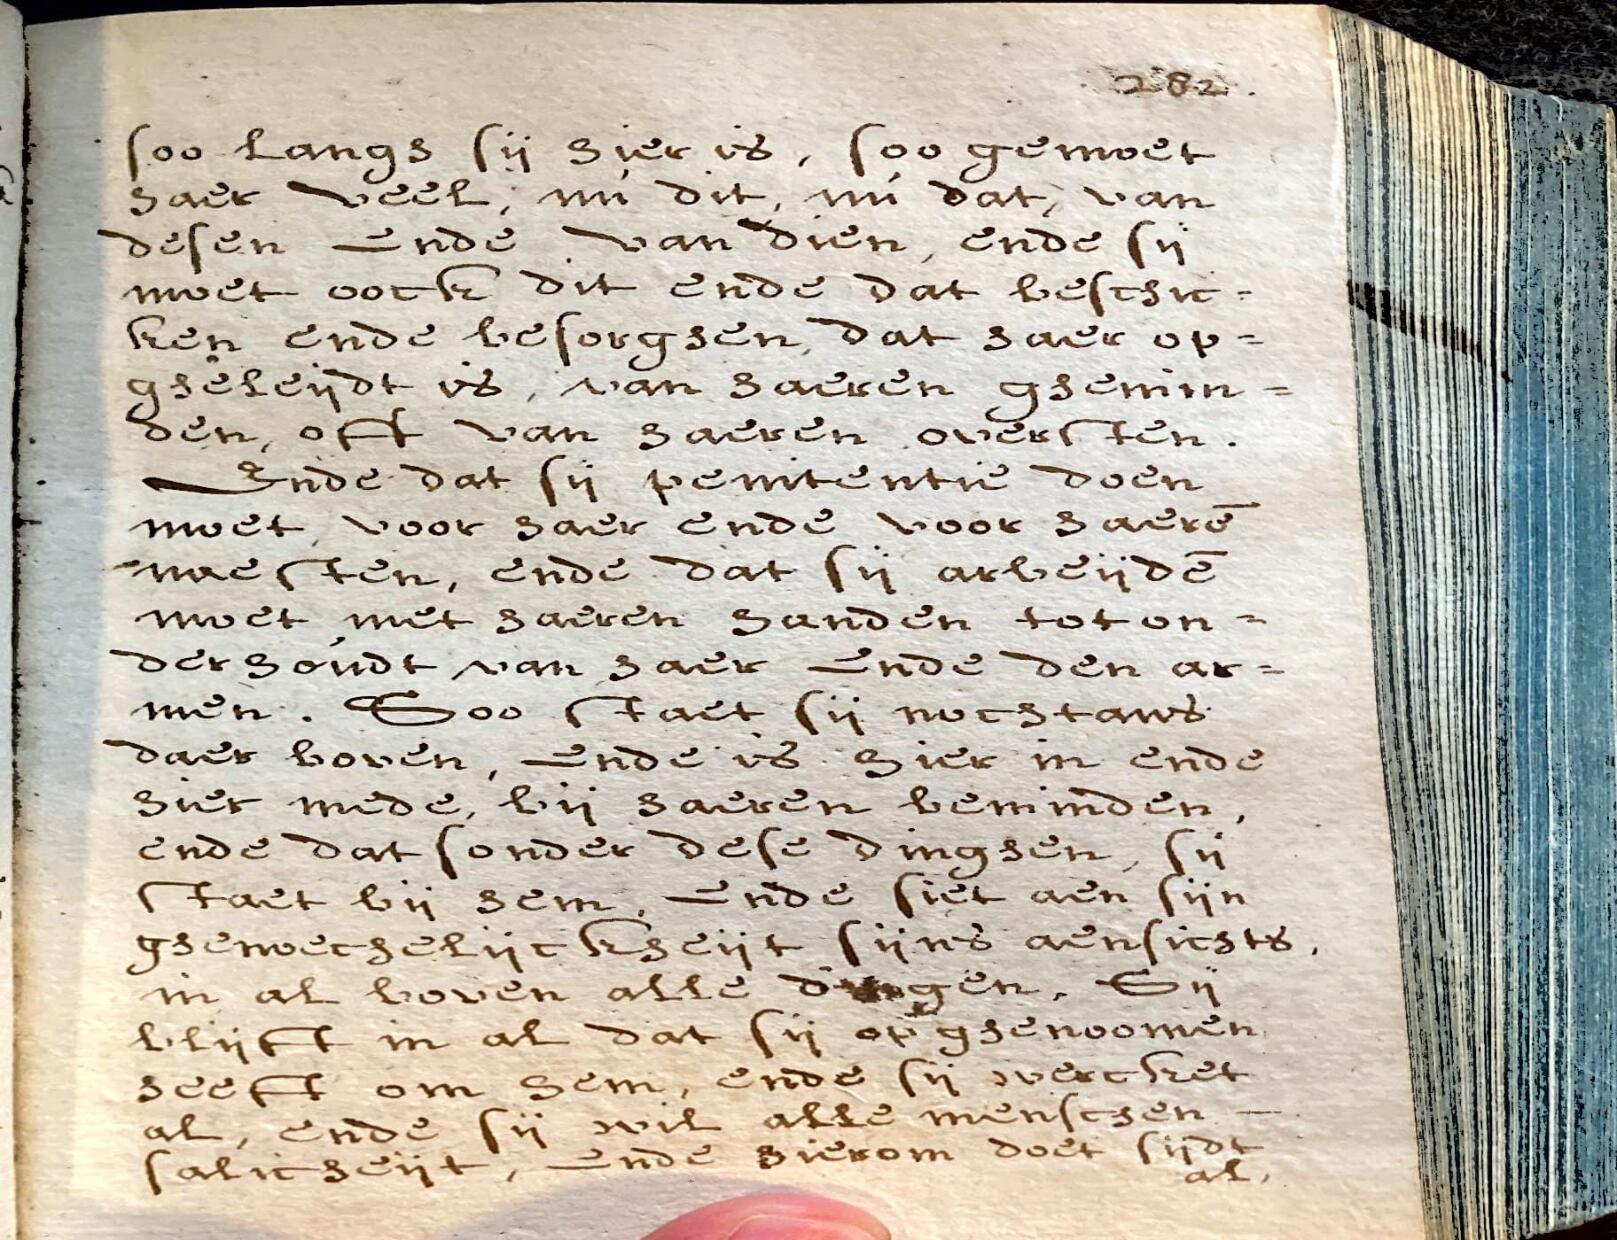 282.
soo langh sij hier is, soo gemoet
haer veel, nú dit, nú dat, van
desen Ende van dien, ende sij
moet oock dit ende dat beschic=
ken ende besorghen, dat haer op=
gheleijdt is, van haeren ghemin=
den, oft van haeren oversten.
Ende dat sij penitentie doen
moet, voor haer ende voor haerē
naesten, ende dat sij arbeijdē
moet met haeren handen tot on=
derhoúdt van haer Ende den ar=
men. Soo staet sij nochtans
daer boven, Ende is hier in ende
hier mede, bij haeren beminden,
ende dat sonder dese dinghen, sij
staet bij hem, Ende siet aen sijn
ghenoechelijckheijt sijns aensichts,
in al boven alle dingen. Sij
blijft in al dat sij op ghenoomen
heeft om hem, ende sij wercket
al, ende sij wil alle menschen —
salicheijt, Ende hierom doet sijdt
al,